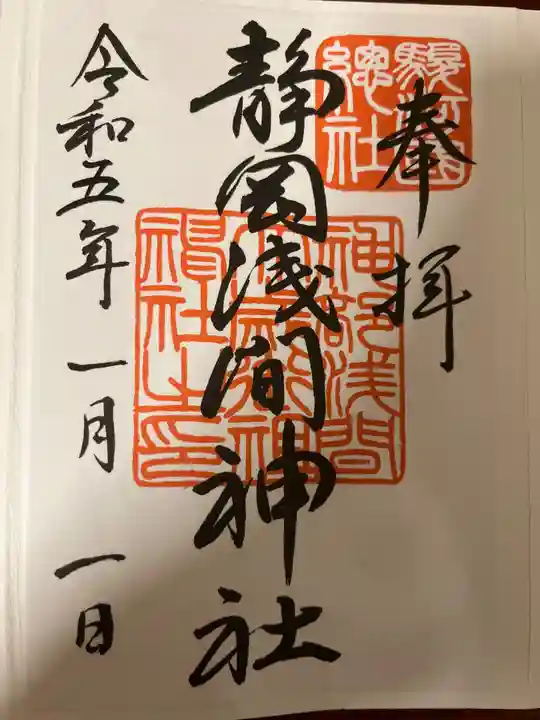 奉拝
駿河國
總社
静岡浅間神社
神部浅間
大歳御祖神
社之印
令和五年 一月 一日